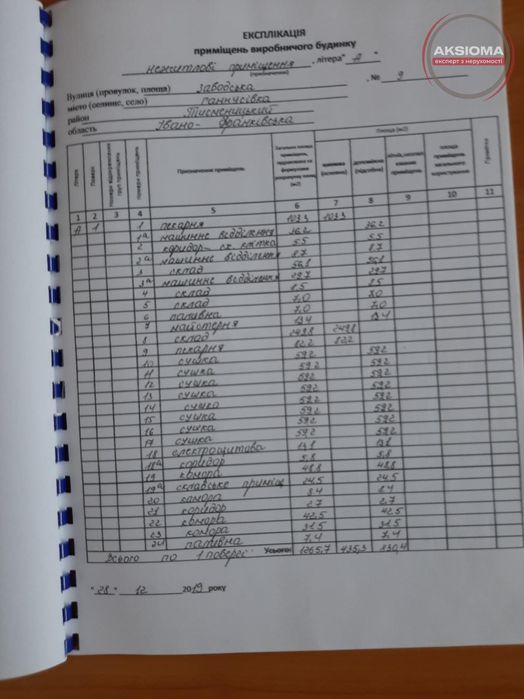 AKSIOMA
експерт з нерухомості
ЕКСПЛІКАЦІЯ
приміщень виробничого будинку
нежитлові приміщення , літера "А"
(призначення)
Вулиця (провулок, площа) Заводська , № 9
місто (селище, село) Ганнусівка
район Тисменицький
область Івано-Франківська
Літера Поверх Номери приміщень Призначення приміщень Площа (м2) Примітка
1 2 3 4 5 6 7 8 9 10 11
А 1 1 пекарня 103.3 103.3
1а машинне відділення 36.2 36.2
2 коридор-сх. клітка 5.5 5.5
2а машинне відділення 8.7 8.7
3 склад 56.8 56.8
3а машинне відділення
4 склад 8.5 8.5
5 склад 7.0 7.0
6 паливна 7.0 7.0
7 майстерня 13.4 13.4
8 склад 249.8 249.8
9 пекарня 82.2 82.2
10 сушка 59.2 59.2
11 сушка 59.2 59.2
12 сушка 59.2 59.2
13 сушка 59.2 59.2
14 сушка 59.2 59.2
15 сушка 59.2 59.2
16 сушка 59.2 59.2
17 сушка 59.2 59.2
18 електрощитова 13.1 13.1
18а коридор 5.8 5.8
19 комора 48.8 48.8
19а складське приміщ 24.5 24.5
20 комора 8.4 8.4
21 коридор 2.7 2.7
22 комора 42.5 42.5
23 комора 31.5 31.5
24 паливна 7.4 7.4
Всього по 1 поверсі Усього: 1265,7 435,3 830,4
"28" 12 2019 року